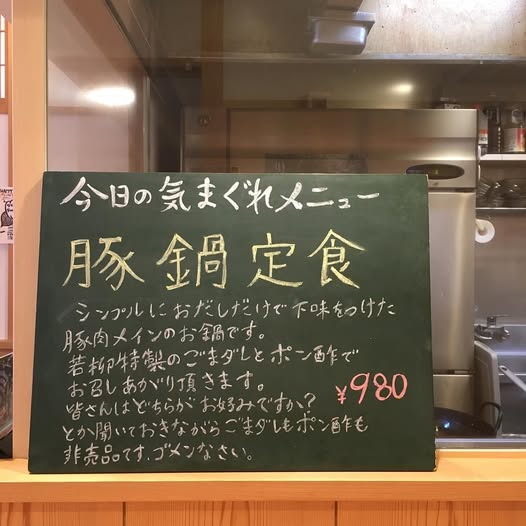 今日の気まぐれメニュー
豚鍋定食
シンプルにおだしだけで下味をつけた
豚肉メインのお鍋です。
若柳特製のごまダレとポン酢で
お召しあがり頂きます。
¥980
皆さんはどちらがお好みですか?
とか聞いておきながらごまダレもポン酢も
非売品です、ゴメンなさい。